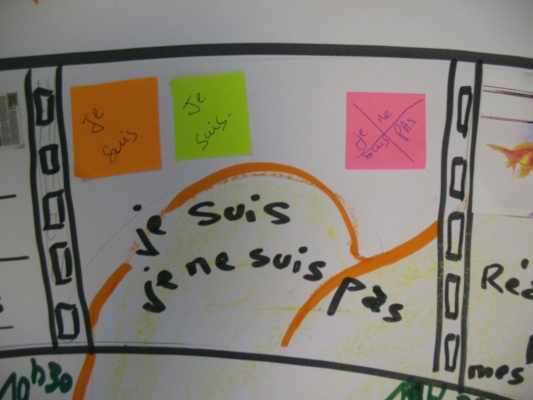 Je
suis
Je
suis.
je ne
suis pas
je suis
je ne suis pas
Réa
mes
10h30